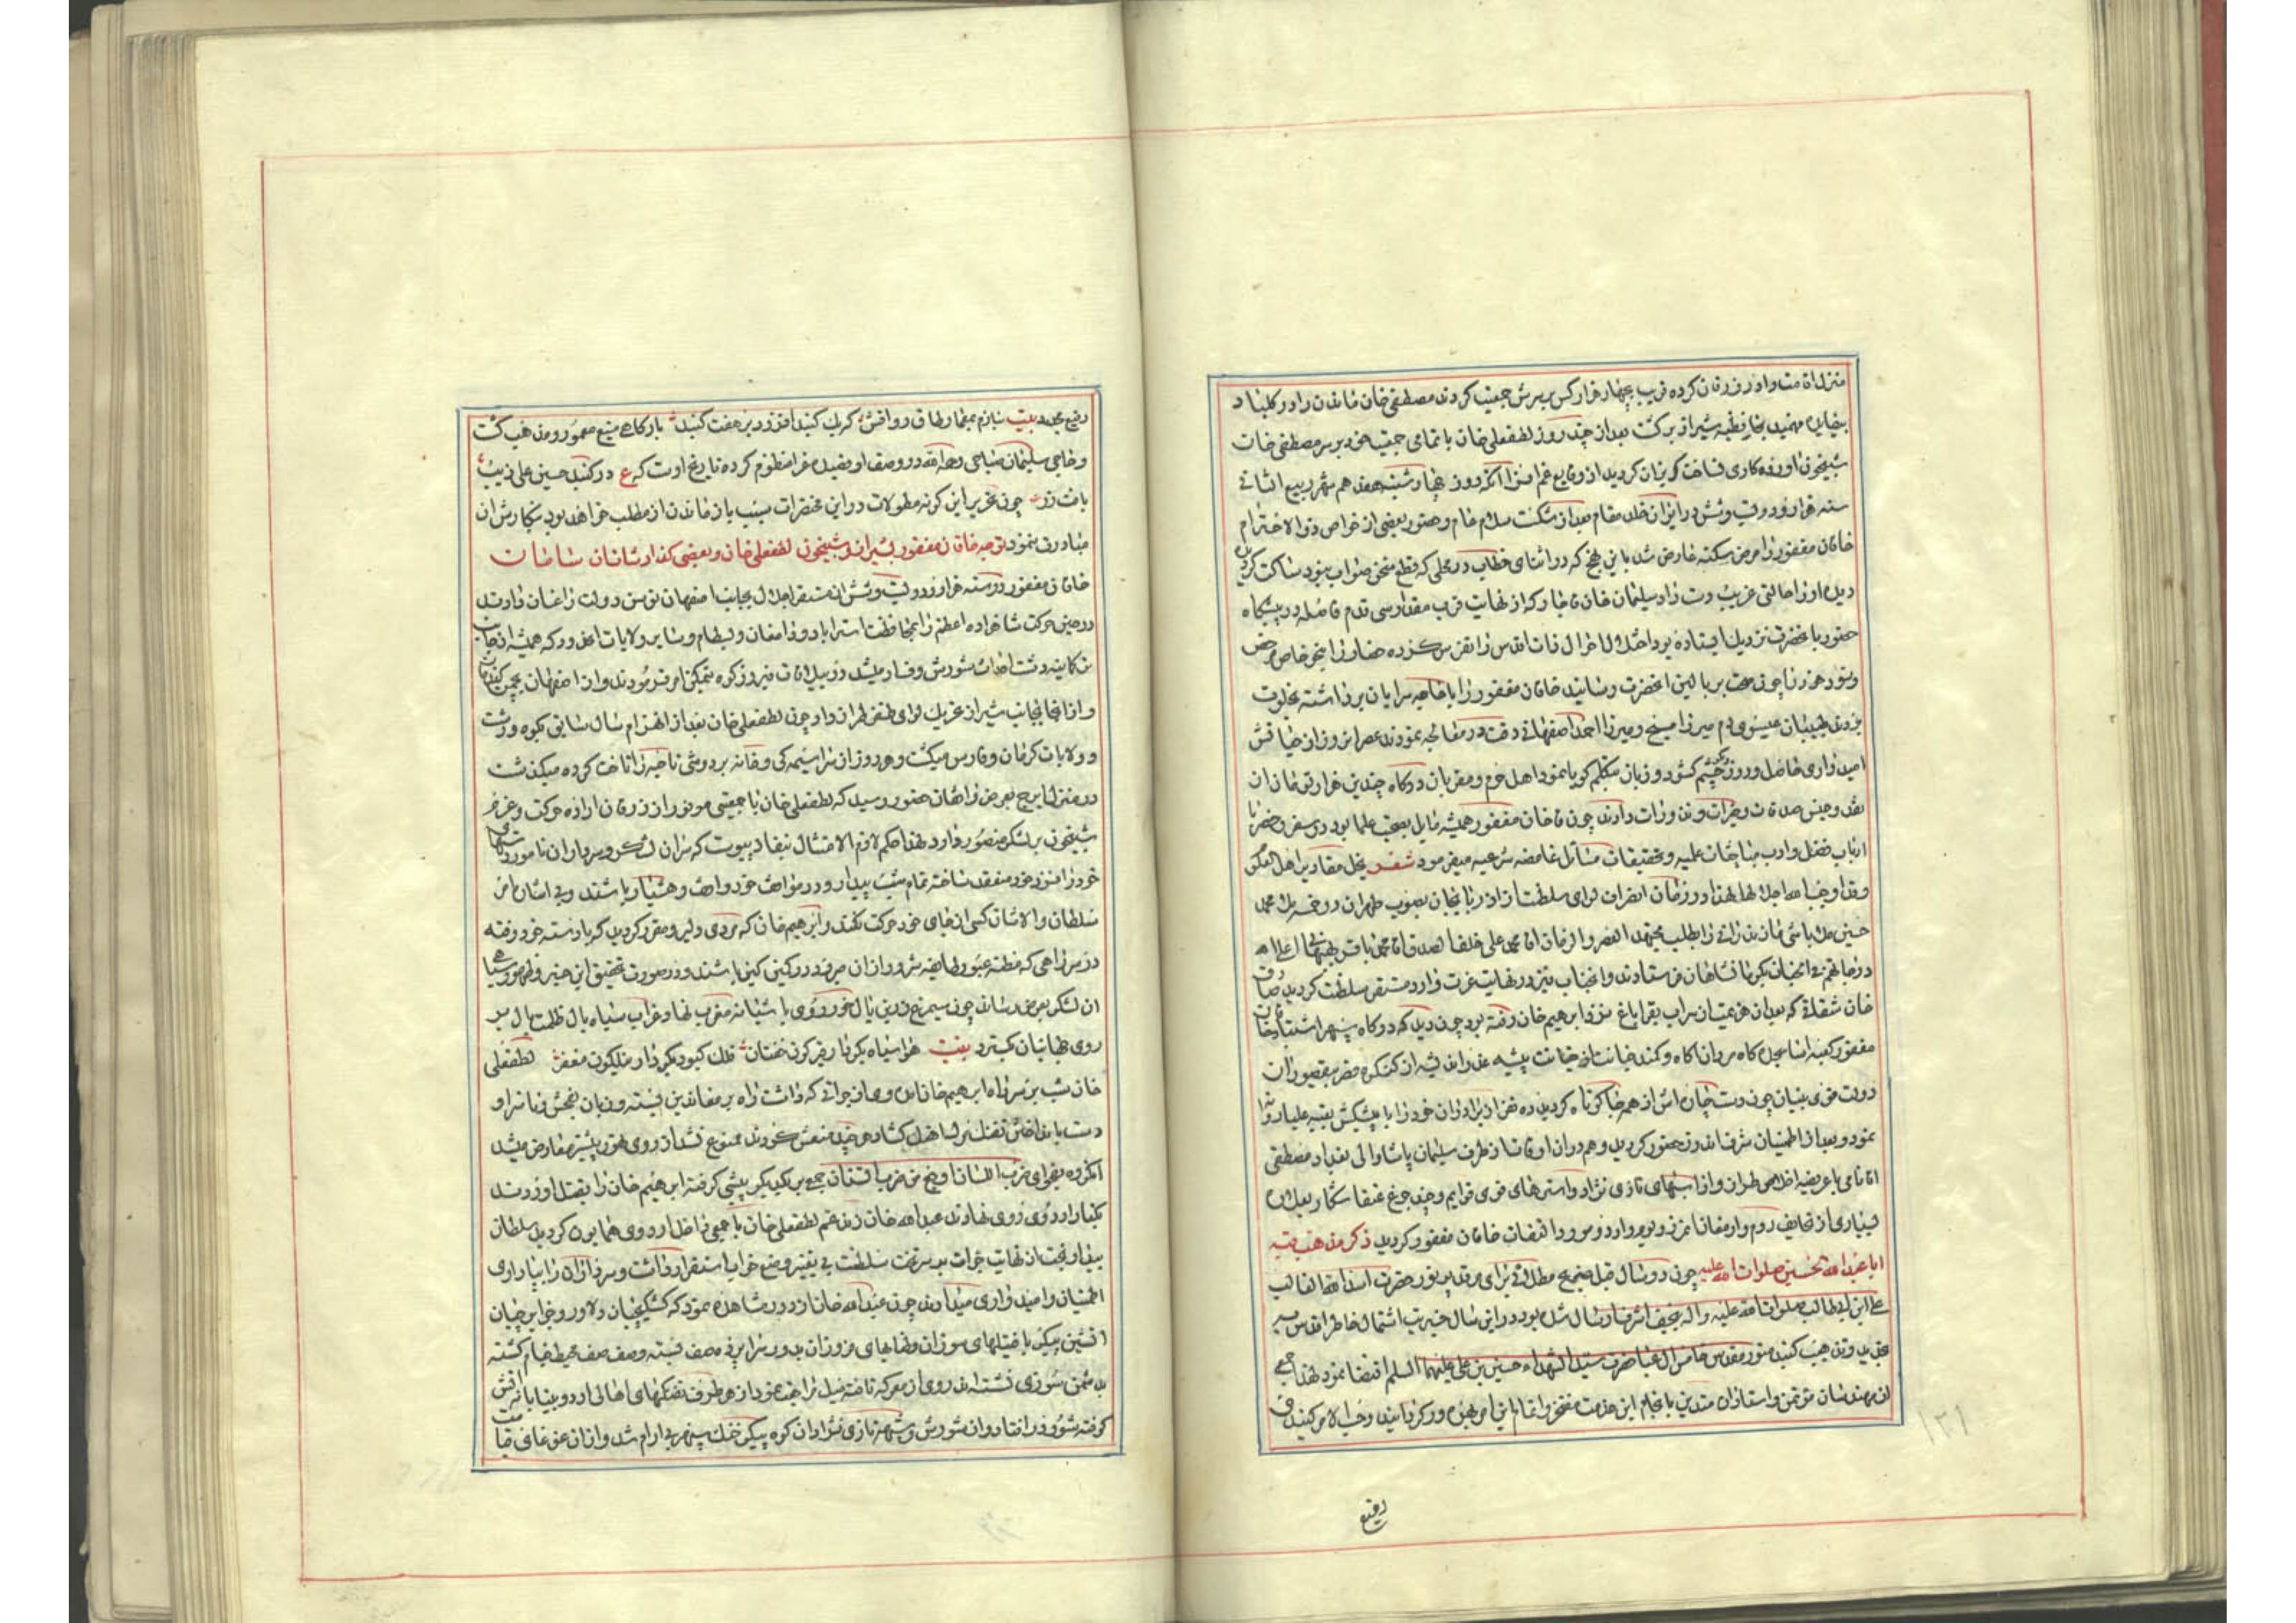 منزل اقامت و اورزرقان کرده قریب بچهار هزار کس بر سرش جمعیت کردند مصطفی خان ماندن را در کلبناد
بیفایده فهمیده بمحافظه شیراز برگشت بعد از چند روز لطفعلی خان با تمامی جمعیت خود بر سر مصطفی خان
شبیخون آورده کاری نساخت گریزان گردید از وقایع غم افزا آنکه روز چهارشنبه هفدهم شهر ربیع الثانی
سنه هزار و دویست و شش در ایران خلد مقام بعد از شکست سلام عام و حضور بعضی از خواص ذوالاحترام
خاقان مغفور را مرض سکته عارض شد باین نهج که در اثنای خطاب در محلی که قطع سخن صواب نبود ساکت گردید
دیده او را حالتی غریب دست زاد سلیمان خان قاجار که از نهایت قرب مقدار سی قدم فاصله در پیشگاه
حضور بآنحضرت نزدیک ایستاده بود اختلال احوال ذات اقدس را تفرس کرده حضار را بجز خاص مرخص
و خود هرزنا چون صحت بر بالین آنحضرت رسانید خاقان مغفور را با خواجه سرایان برداشته بخلوت
بردند طبیبان عیسوی دم میرزا مسیح و میرزا احمد اصفهانی دقت در معالجه نمودند عصر آنروز از حیاتش
امیدواری حاصل و روز دیگر چشم گشود و زبان بتکلم گویا نمود اهل حرم و مقربان درگاه چندین خرار تومان از
نقد و جنس صدقات و خیرات و نذورات دادند چون خاقان مغفور همیشه مایل بصحبت علما بود در سفر و حضر با
ارباب فضل و ادب مباحثات علمیه و تحقیقات مسائل غامضه شرعیه میفرمود شعر یحل مقادیر اهل الملک
وقد اوجب الله اجلالها لهذا در زمان انصراف لوای سلطنت از آذربایجان بصوب طهران در قزوین محمد
حسین ملاباشی مازندرانی را بطلب مجتهد العصر و الزمان آقا محمد علی خلف الصدق آقا محمد باقر بهبهانی اعلی الله
درجاتهم فی الجنان بکرمانشاهان فرستادند و آنجناب نیز در نهایت عزت وارد مستقر سلطنت گردید صادق
خان شقاقی که بعد از هزیمت از سراب بقراباغ نزد ابراهیم خان رفته بود چون دید که درگاه سپهر اشتباه خاقان
مغفور کعبه آسا سجده گاه سروران آگاه و کمند خیانت از خیانت پیشه غدر اندیشه از کنگره قصر بیقصور آن
دولت قوی بنیان چون دست جهان آسان از همه جا کوتاه گردید ده نفر از برادران خود را با پیشکش بعتبه علیا روانه
نمود و بعد از اطمینان شرف اندوز حضور گردید و هم در آن اوقات از طرف سلیمان پاشا والی بغداد مصطفی
آقا نامی با عریضه اخلاص طراز و از اسبهای تازی نژاد و استرهای قوی قوایم و چند چرغ عنقا شکار بعلاوه
بسیاری از تحایف روم و ارمغانات مرز و بوم وارد و مورد التفات خاقان مغفور گردید ذکر مذهب قبه
ابا عبدالله الحسین صلوات الله علیه چون در سال قبل ضریح مطلائی برای مرقد پر نور حضرت اسد الله الغالب
علی ابن ابیطالب صلوات الله علیه و آله بنجف اشرف ارسال شده بود در این سال خیریت اشتمال خاطر اقدس بر
تجدید و تذهیب گنبد منور مقدس خامس آل عبا حضرت سید الشهداء حسین بن علی علیهما السلم اقتضا نمود لهذا جمعی
از مهندسان مؤتمن و استادان متدین بانجام این خدمت مفتخر و اتمام این امر بهره ور گردانیدند و حسب الامر گنبدی
رفیع
رفیع مجدد بیت نازم بمعمار طاق رواقش که یک گنبد افزود بر هفت گنبد بارگاهی منیع معمور و مذهب گشت
و حاجی سلیمان صباحی رحمه الله در وصف او قصیده غرا منظوم کرده تاریخ اوست که ع در گنبد حسین علی زیب
یافت زر چون تحریر این گونه مطولات در این مختصرات سبب باز ماندن از مطلب خواهد بود بنگارش آن
مبادرت ننمود توجه خاقان مغفور بشیراز و شبیخون لطفعلی خان و بعضی گذارشات آن سامان
خاقان مغفور در سنه هزار و دویست و شش از مستقر اجلال بجانب اصفهان توسن دولت را عنان دادند
در حین حرکت شاهزاده اعظم را بمحافظت استراباد و دامغان و بسطام و سایر ولایات آنحدود که همیشه از جانب
ترکمانیه دشت احداث شورش و فساد میشد در ییلاقات فیروزکوه بتمکن امر فرمودند و از اصفهان بچمن گندمان
و از آنجا بجانب شیراز عزیمت لوای ظفر طراز داد چون لطفعلی خان بعد از انهزام سال سابق بکوه و دشت
و ولایات کرمان و فارس میگشت و هر روز از سراسیمگی وقانه بر دو شی ناحیه را تاخت کرده میگذشت
در منزل ایرج بعرض واقفان حضور رسید که لطفعلی خان با جمعیتی موفور از زرقان اراده حرکت و عزم
شبیخون بر لشکر منصور دارد لهذا حکم لازم الامتثال بنفاد پیوست که سران لشکر و سرداران نامور دستهای
خود را نزد خود منعقد ساخته تمام شب بیدار و در مواضع خود واقف و هشیار باشند و بی استیذان امر
سلطان والاشان کسی از جای خود حرکت نکند و ابراهیم خان که مردی دلیر و مقرر گردید که با دسته خود رفته
در سر راهی که مظنه عبور طایفه شرور از آن میرود در کمین کمین باشند و در صورت تحقیق این خبر و ظهور سیاهی
آن لشکر بعرض رساند چون سیمرغ زرین بال خور روی باشیانه مغرب نهاد و غراب سیاه بال ظلمت بال بر
روی جهانیان گسترد بیت هوا سیاه بکردار قیرگون خفتان فلک کبود بکردار نیلگون مغفر لطفعلی
خان شب بر سر راه ابراهیم خان آمد وی از جراتی که داشت راه بر معاندین بسته و زبان بفحش و ناسزا و
دست بانداختن تفنک بر آنها گشاد هر چند منعش کردند ممنوع نشد از روی تهور پیشتر معارض میشد
آنگروه بفحوای ضرب اللسان اوجع من ضرب السنان جمع بر یکدیگر پیشی گرفته ابراهیم خان را بقتل آوردند
بکنار اردوی روی نهادند عبدالله خان زند عم لطفعلی خان با جمعی داخل اردوی همایون گردید سلطان
بیدار بخت از نهایت جرات بر سر تخت سلطنت بی تغییر وضع خواب استقرار داشت و سرداران را بپایداری
اطمینان و امیدواری میدادند چون عبدالله خان از دور مشاهده نمود که کشیکچیان دلاور و جزایرچیان
آتشین پیکر با فتیلهای سوزان و شمعهای فروزان بدور سراپرده صف بسته و صف صف محیط خیام گشته
بدشمن سوزی نشسته اند روی از معرکه تافته میل مراجعت نمود از هر طرف تفنکهای اهالی اردو بیتابانه آتش
گرفته شور در افتاد و از شورش و شیهه تازی نژادان کوه پیکر خنگ سپهر بی آرام شد و از آن غوغای قیامت
۱۲۱